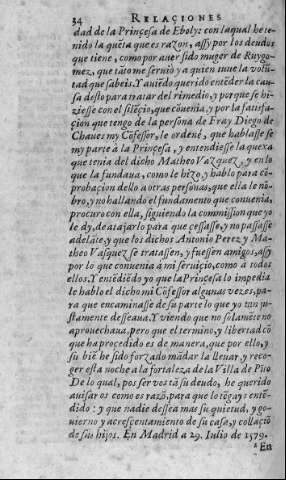 34 RELACIONES
dad de la Prinçesa de Eboly: con laqual he te-
nido la quẽta que es razon, assy por los deudos
que tiene, como por auer sido muger de Ruygo-
mez, que tãto me seruio y a quien tuue la volũ-
tad que sabeis. Y auiẽdo querido entẽder la cau-
sa desto para tratar del rimedio, y porque se hi-
ziesse con el silẽcio, que cõuenia, y por la satisfa-
ciõn que tengo de la persona de Fray Diego de
Chaues my Cõfessor, le ordené, que hablasse de
my parte à la Prinçesa, y entendiesse la quexa
que tenia del dicho Matheo Vazquez, y en lo
que la fundaua, como le hizo, y hablo para cõ-
probaçion dello a otras personas, que ella le nõ-
bro, y no hallando el fundamento que conuenia,
procuro con ella, siguiendo la commission que yo
le dy, de atajarlo para que çessasse, y no passasse
adelãte, y que los dichos Antonio Perez y Ma-
theo Vasquez se tratassen, y fuessen amigos, assy
por lo que conuenia à mi seruiçio, como à todos
ellos. Y entẽdiẽdo yo que la Prinçesa lo impedia
le hablo el dicho mi Cõfessor algunas vezes, pa-
ra que encaminasse de su parte lo que yo tan ju-
stamente desseaua. Y viendo que no solamẽte no
aprouechaua, pero que el termino, y libertad cõ
que ha proçedido es de manera, que por ello, y
su biẽ he sido forzado mãdar la lleuar, y reco-
ger esta noche a la fortaleza de la Villa de Pĩto.
De lo qual, pos ser vos tã su deudo, he querido
auisar os como es razõ, para que lo tẽgays entẽ-
dido: y que nadie dessea mas su quietud, y go-
uierno y acresçentamiento de su casa, y collaçiõ
de sus hijos. En Madrid a 29. Iulio de 1579.
En